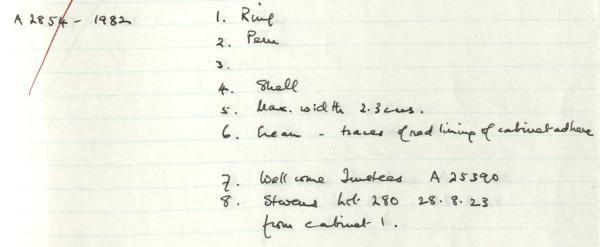 A 2854 - 1982
1. Ring
2. Peru
3.
4. Shell
5. Max. width 2.3 cms.
6. Cream - traces of red lining of cabinet adhere
7. Wellcome Trustees A 25390
8. Stevens Lot. 280 28.8.23
from cabinet 1.